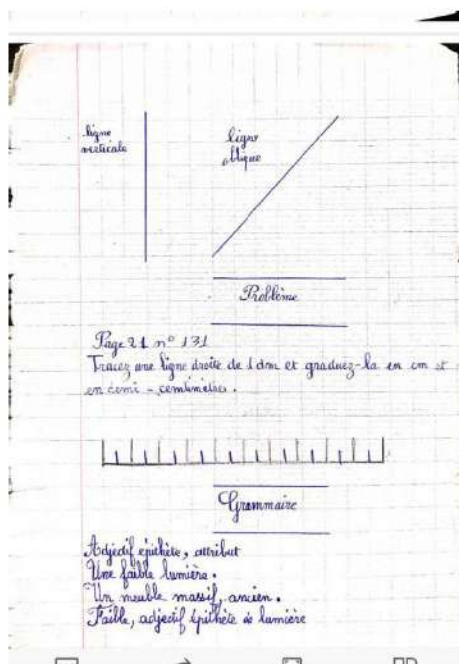 ligne
verticale
ligne
oblique
Problème
Page 21 n° 131
Tracez une ligne droite de 1 dm et graduez-la en cm et
en demi-centimètres.
Grammaire
Adjectif épithète, attribut
Une faible lumière.
Un meuble massif, ancien.
Faible, adjectif épithète de lumière